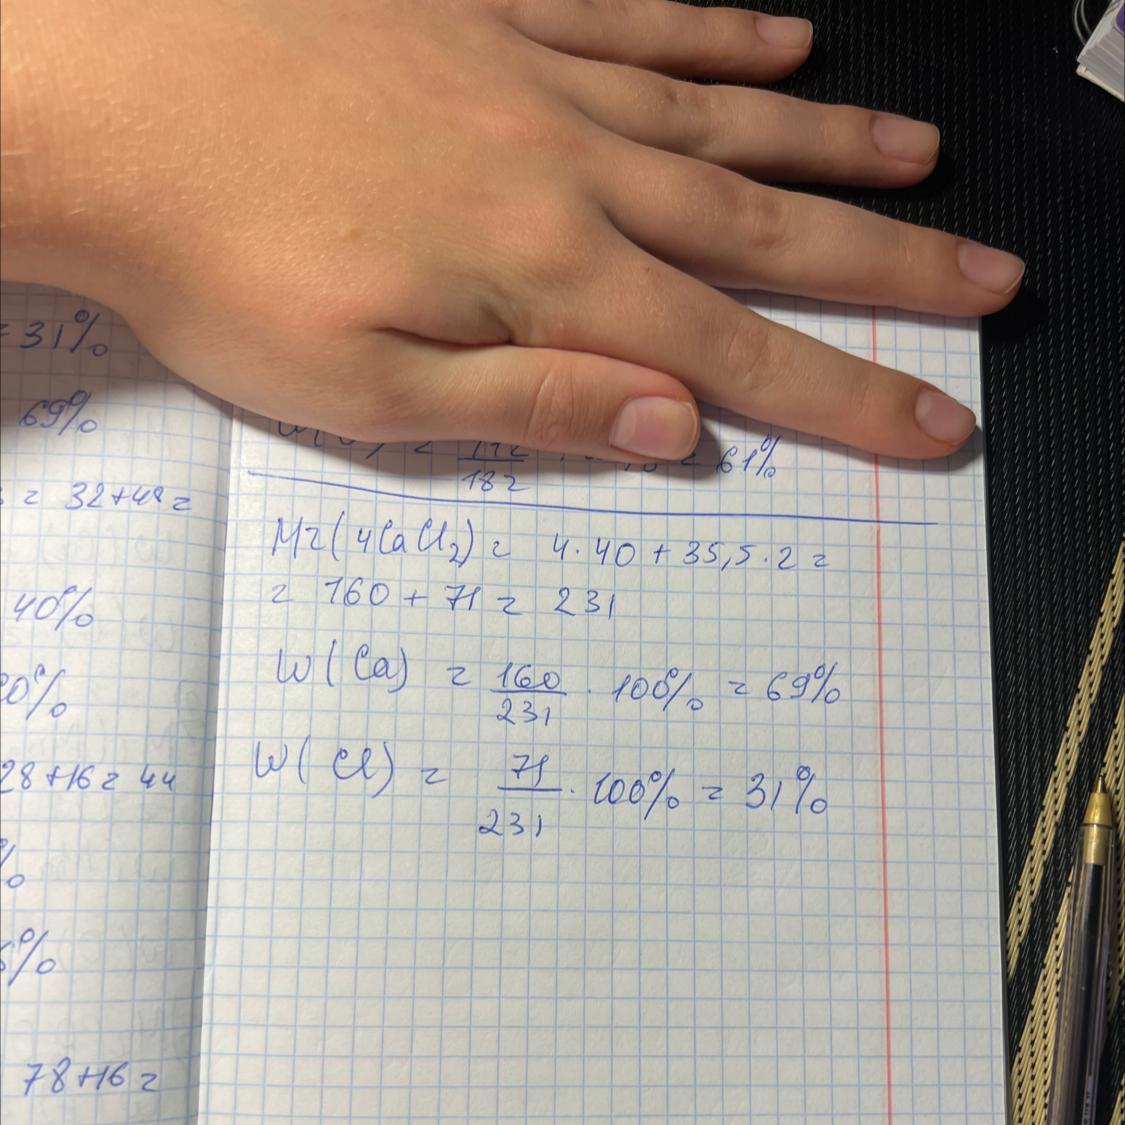 = 31%
69%
= 32+48=
40%
28+16=44
78+16=
182
= 61%
Mr(4CaCl₂) = 4·40+35,5·2=
= 160+71= 231
W(Ca) = 160/231 · 100% = 69%
W(Cl) = 71/231 · 100% = 31%